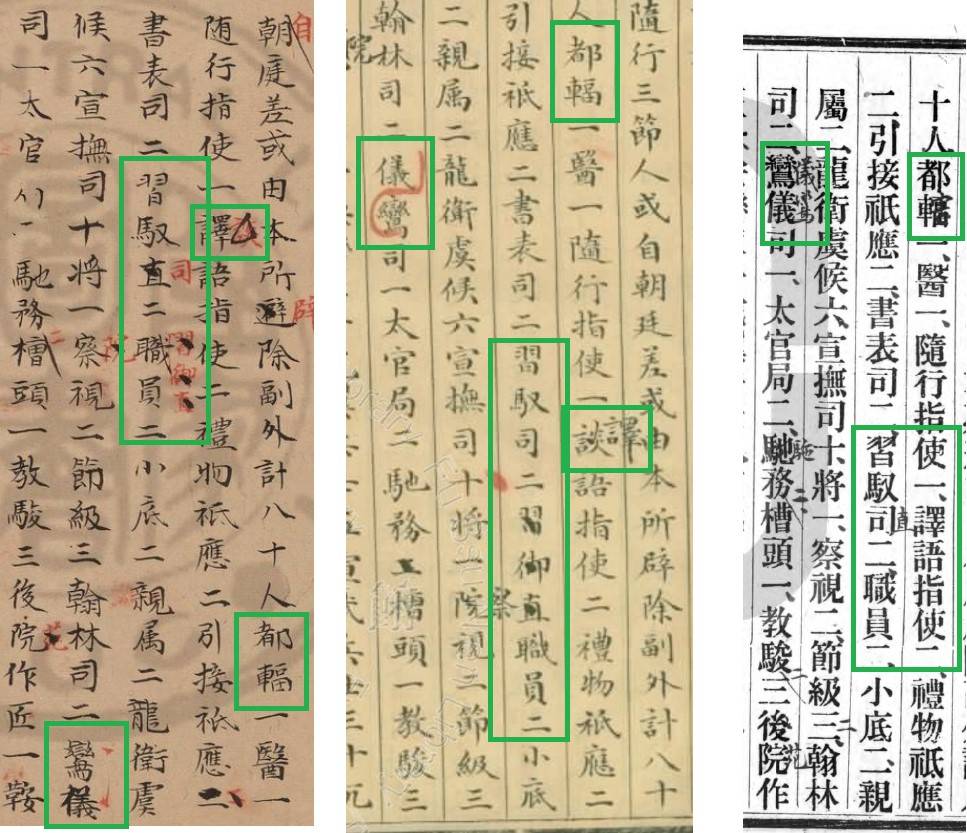 朝庭差或由本所避除副外計八十人都輻一醫一
随行指使一譯語指使二禮物祇應二引接祇應二
書表司二習馭直二職員二小底二親属二龍衛虞
候六宣撫司十将一察視二節級三翰林司二鸞儀
司一太官一馳務槽頭一教駿三後院作匠一鞍
自
辟
司
習御直
院
二
苑
隨行三節人或自朝廷差或由本所辟除副外計八十
人都輻一醫一隨行指使一談語指使二禮物祇應二
譯
引接祇應二書表司二習馭司二習御直職員二小底
二親属二龍衛虞候六宣撫司十将一院視二節級三
察
翰林司二儀鸞司一太官局二馳務二槽頭一教駿三
院
十人都轄一、醫一、隨行指使一、譯語指使二、禮物祇應
二、引接祇應二、書表司二、習馭司二、職員二、小底二、親
直
屬二、龍衛虞候六、宣撫司十將一、察視二、節級三、翰林
司二、鸞儀司一、太官局二、馳務槽頭一、教駿三、後院作